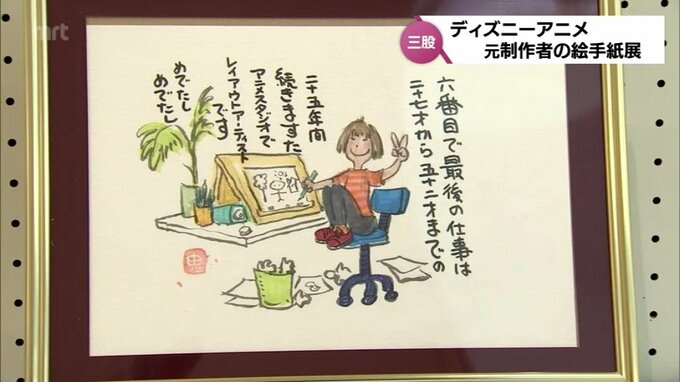 mrt
三股
ディズニーアニメ
元制作者の絵手紙展
六番目で最後の仕事は
二十七才から五十二才までの
二十五年間
続きますた
アニメスタジオで
レイアウトアーティスト
です
めでたし
めでたし